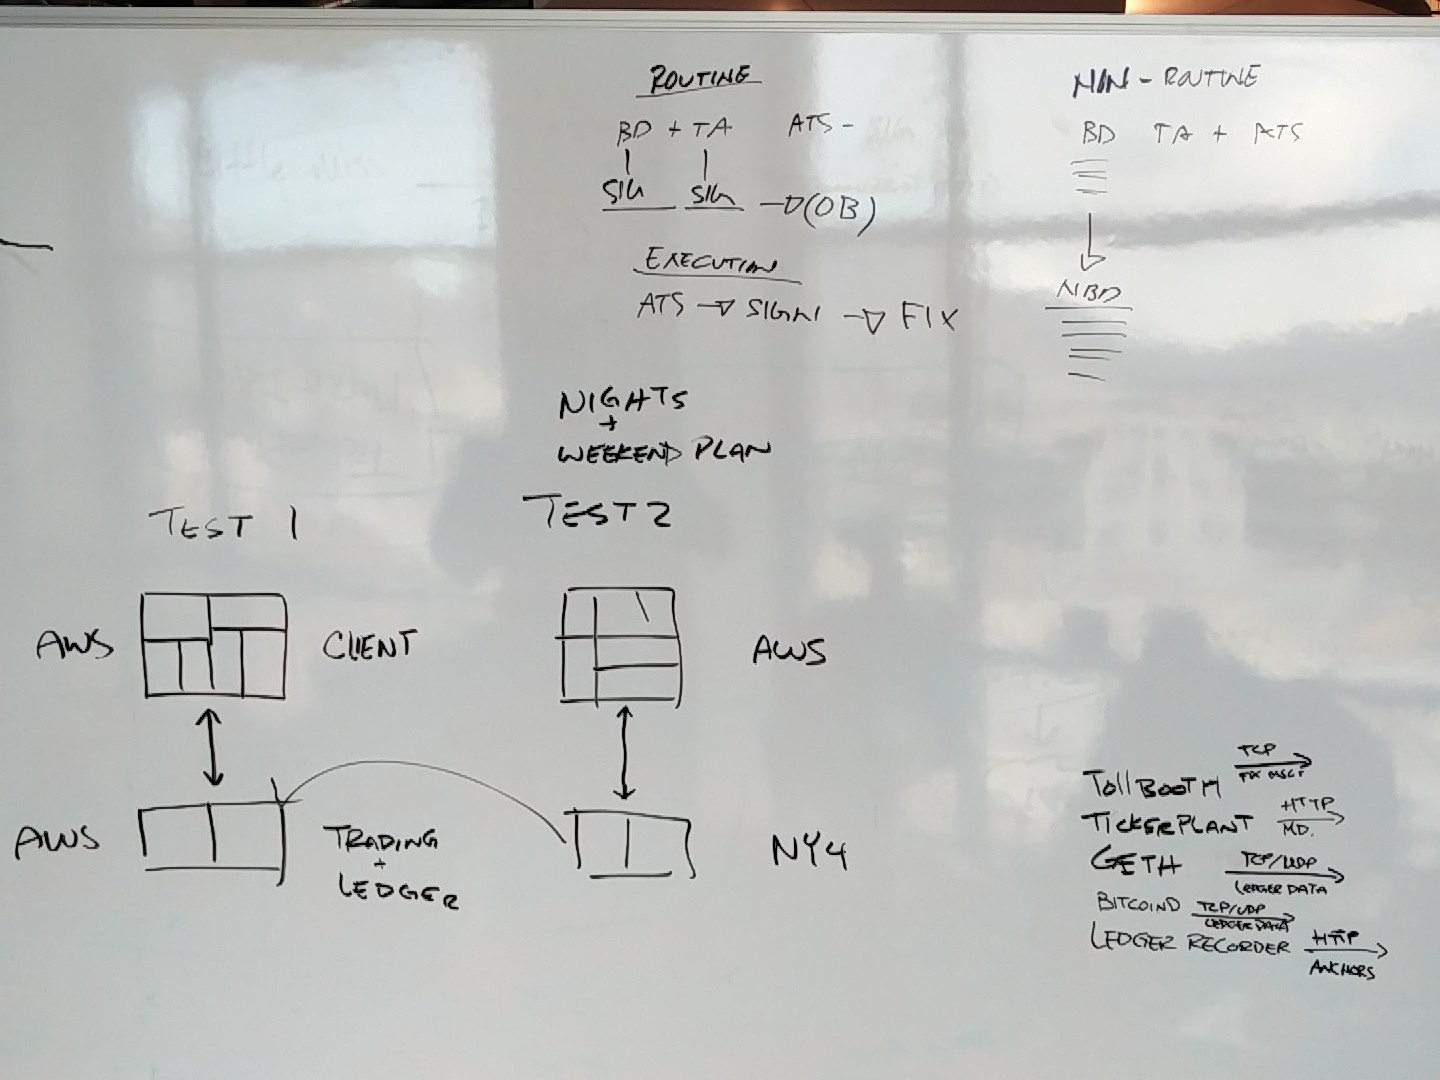 ROUTINE
BD + TA ATS -
SIG SIG → (OB)
EXECUTION
ATS → SIGN → FIX
NON - ROUTINE
BD TA + ATS
NBD
NIGHTS
+
WEEKEND PLAN
TEST 1
AWS CLIENT
AWS TRADING
+
LEDGER
TEST 2
AWS
NY4
TOLLBOOTH TCP
FIX MSGS
TICKERPLANT HTTP
MD.
GETH TCP/UDP
LEDGER DATA
BITCOIND TCP/UDP
LEDGER DATA
LEDGER RECORDER HTTP
ANCHORS